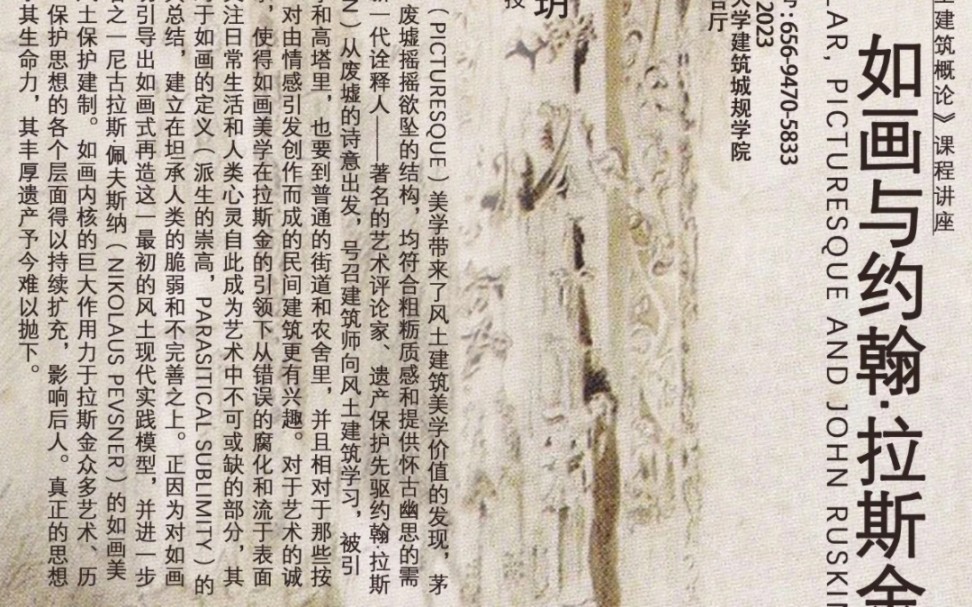 建筑概论》课程讲座
如画与约翰·拉斯金
LAR, PICTURESQUE AND JOHN RUSKIN
: 656-9470-5833
2023
大学建筑城规学院
厅
玥
（PICTURESQUE）美学带来了风土建筑美学价值的发现，茅
废墟摇摇欲坠的结构，均符合粗粝质感和提供怀古幽思的需
新一代诠释人——著名的艺术评论家、遗产保护先驱约翰·拉斯
）从废墟的诗意出发，号召建筑师向风土建筑学习，被引
和高塔里，也要到普通的街道和农舍里，并且相对于那些按
对由情感引发创作而成的民间建筑更有兴趣。对于艺术的诚
，使得如画美学在拉斯金的引领下从错误的腐化和流于表面
关注日常生活和人类心灵自此成为艺术中不可或缺的部分，其
于如画的定义（派生的崇高，PARASITICAL SUBLIMITY）的
总结，建立在坦承人类的脆弱和不完善之上。正因为对如画
引导出如画式再造这一最初的风土现代实践模型，并进一步
之一尼古拉斯·佩夫斯纳（NIKOLAUS PEVSNER）的如画美
土保护建制。如画内核的巨大作用力于拉斯金众多艺术、历
保护思想的各个层面得以持续扩充，影响后人。真正的思想
其生命力，其丰厚遗产予今难以抛下。